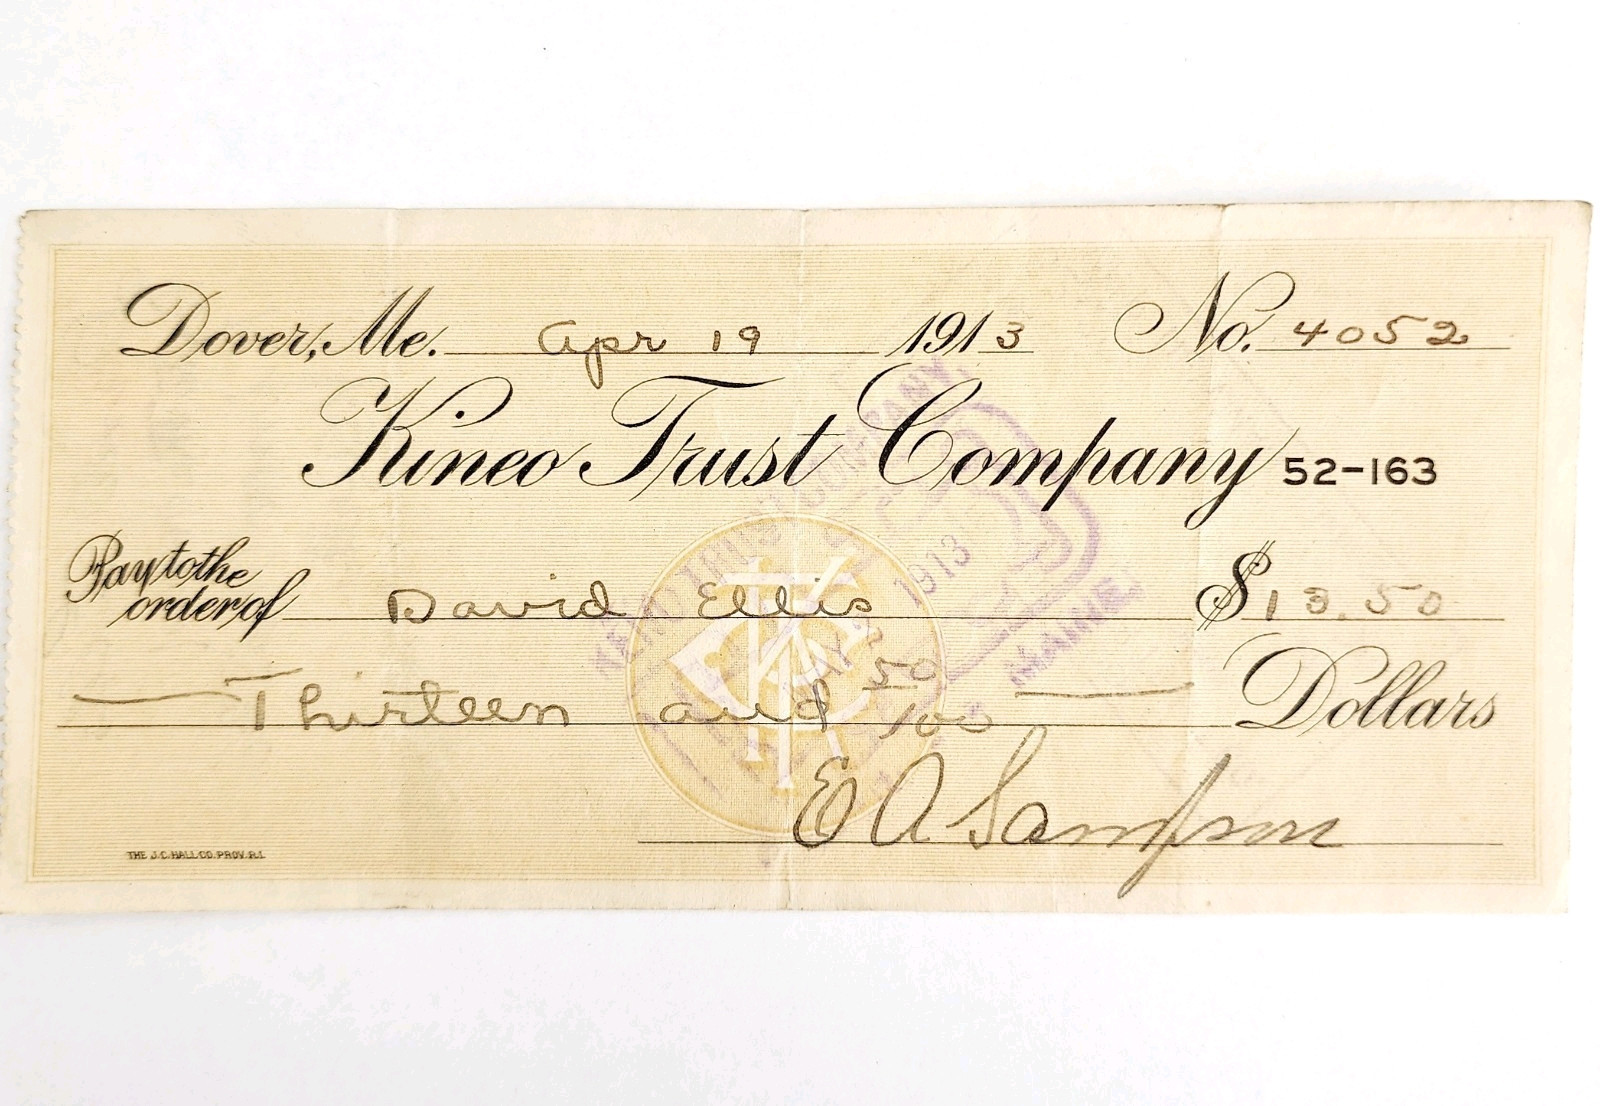 Dover, Me. Apr 19 1913 No. 4052
Kineo Trust Company 52-163
Pay to the
order of David Ellis $13.50
Thirteen and 50/100 Dollars
E A Sampson
THE J.C. HALL CO. PROV. R.I.
TRUST COMPANY,
1913
MAINE
KTC